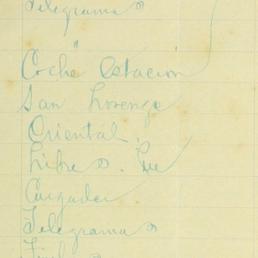 Telegramas
Coche estación
San Lorenzo
Oriental
Libres.
Cargador
Telegramas